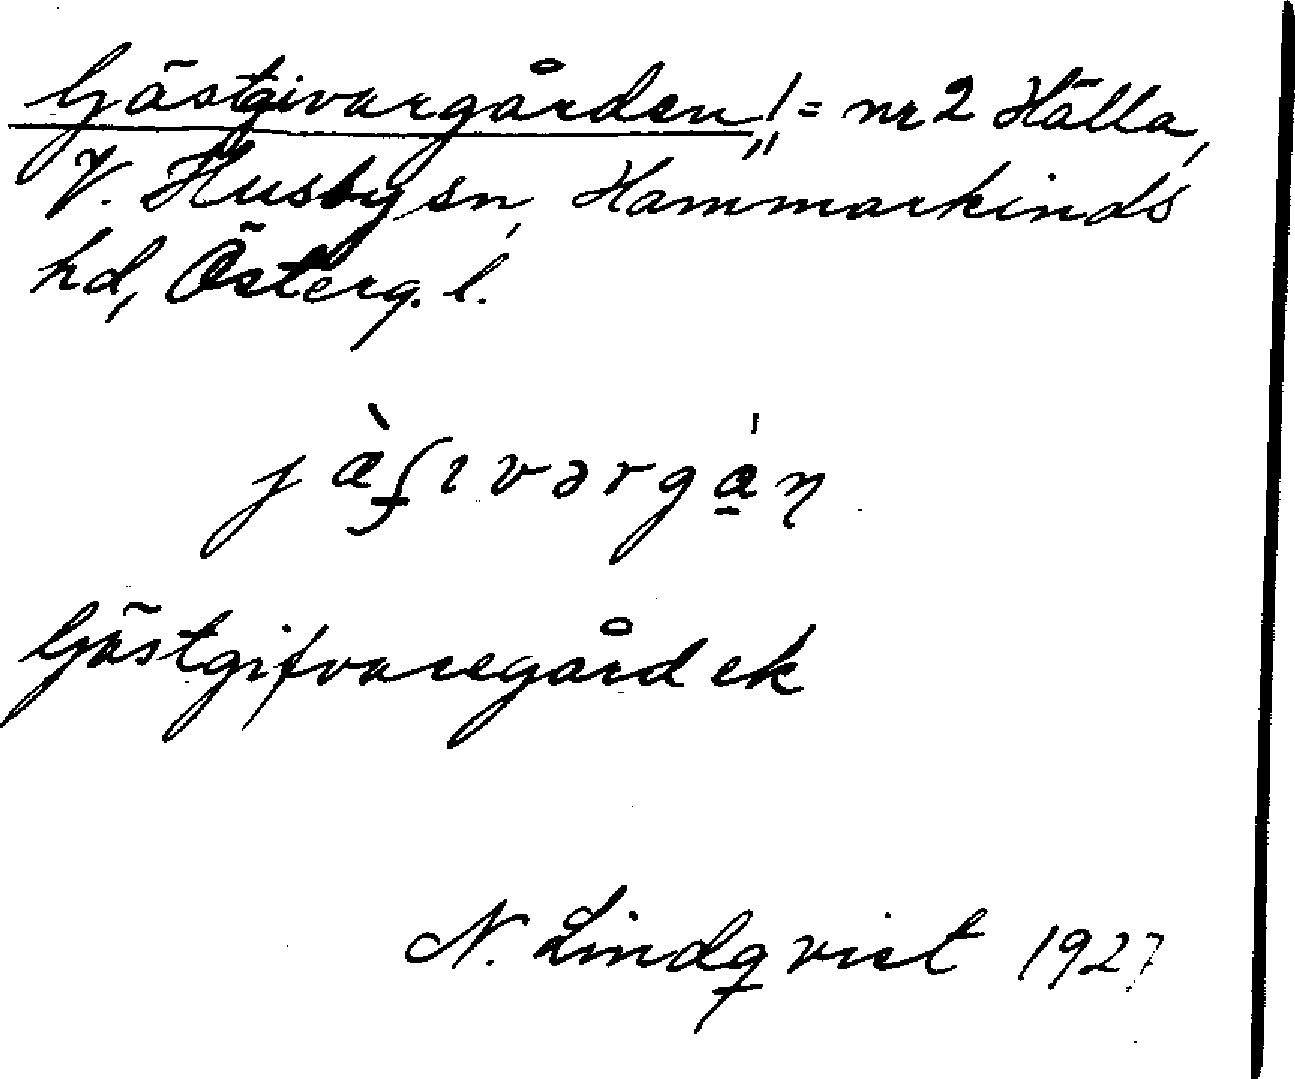 Gästgivargården„! = nr 2 Hälla,
V. Husby sn, Hammarkinds
hd, Österg. l.
jæ̀ʃıvərgá̱ɳ
Gästgifvaregård ek
N. Lindqvist 1927